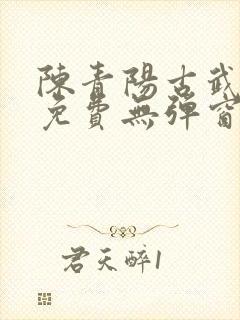 陳青陽古武
免費無彈窗
君天醉1